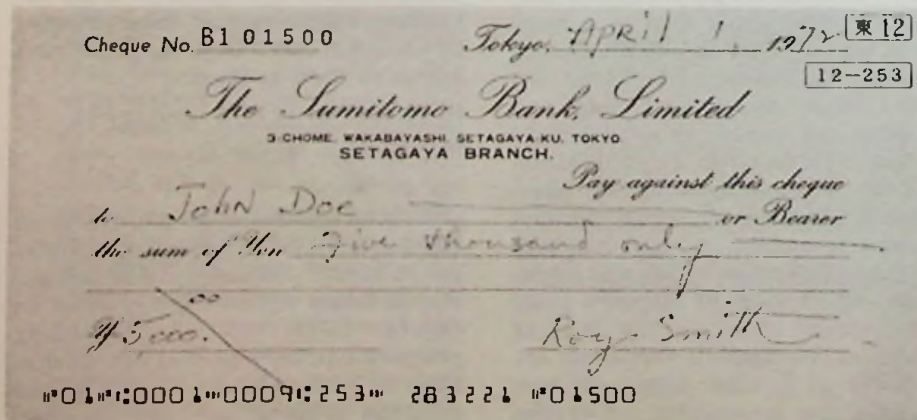 Cheque No. B1 01500 Tokyo, APRil 1, 1972 東 12
12-253
The Sumitomo Bank, Limited
3 CHOME, WAKABAYASHI, SETAGAYA-KU, TOKYO
SETAGAYA BRANCH.
Pay against this cheque
to John Doe or Bearer
the sum of Yen Five thousand only
¥ 5000. 00 Roy Smith
⑈01⑈⑆0001⑉0009⑆253⑈ 283221 ⑈01500